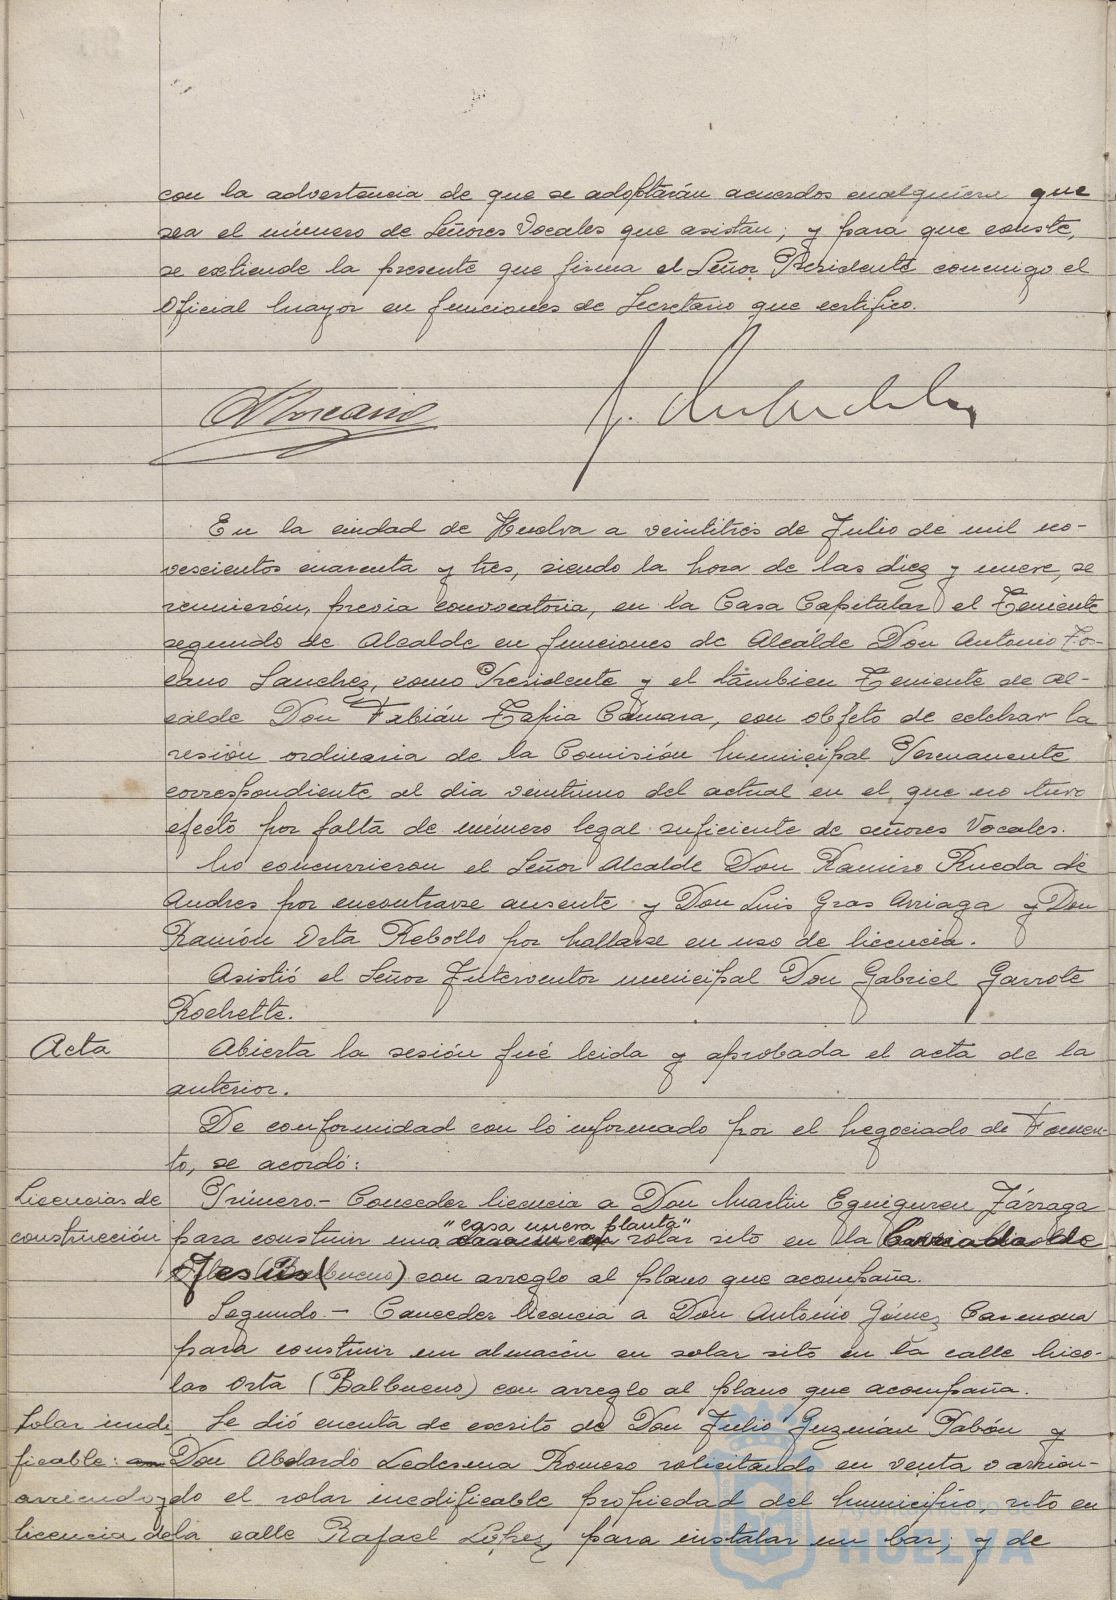 con la advertencia de que se adoptarán acuerdos cualquiera que
sea el número de Señores Vocales que asistan; y para que conste,
se extiende la presente que firma el Señor Presidente conmigo el
Oficial Mayor en funciones de Secretario que certifico.
En la ciudad de Huelva a veintitrés de Julio de mil no-
vescientos cuarenta y tres, siendo la hora de las diez y nueve, se
reunieron, previa convocatoria, en la Casa Capitular el Teniente
segundo de Alcalde en funciones de Alcálde Don Antonio Tos-
cano Sanchez, como Presidente y el tambien Teniente de Al-
calde Don Fabián Tapia Camara, con objeto de celebrar la
sesión ordinaria de la Comisión Municipal Permanente
correspondiente al dia veintiuno del actual en el que no tuvo
efecto por falta de número legal suficiente de señores Vocales.
No concurrieron el Señor Alcalde Don Ramiro Rueda de
Andres por encontrarse ausente y Don Luis Gras Arriaga y Don
Ramón Orta Rebollo por hallarse en uso de licencia.
Asistió el Señor Interventor municipal Don Gabriel Garrote
Rochette.
Acta
Abierta la sesión fué leida y aprobada el acta de la
anterior.
De conformidad con lo informado por el Negociado de Fomen-
to, se acordó:
Licencias de
construcción
Primero.- Conceder licencia a Don Martin Eguiguren Zárraga
"casa nueva planta"
para construir una solar sito en la Barriada de
Jesús (Balbueno) con arreglo al plano que acompaña.
Segundo.- Conceder licencia a Don Antonio Gómez Carmona
para construir un almacén en solar sito en la calle Nico-
las Orta (Balbueno) con arreglo al plano que acompaña.
Solar inedi
ficable:
arriendo y
licencia de
Se dió cuenta de escrito de Don Julio Guzmán Pabón y
Don Abelardo Ledesma Romero solicitando en venta o arrien-
do el solar inedificable propiedad del Municipio, sito en
la calle Rafael López, para instalar un bar; y de
Ayuntamiento de
HUELVA